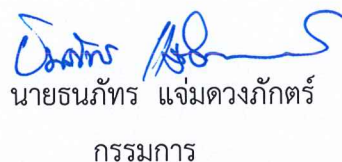 นายธนภัทร แจ่มดวงภักตร์
กรรมการ